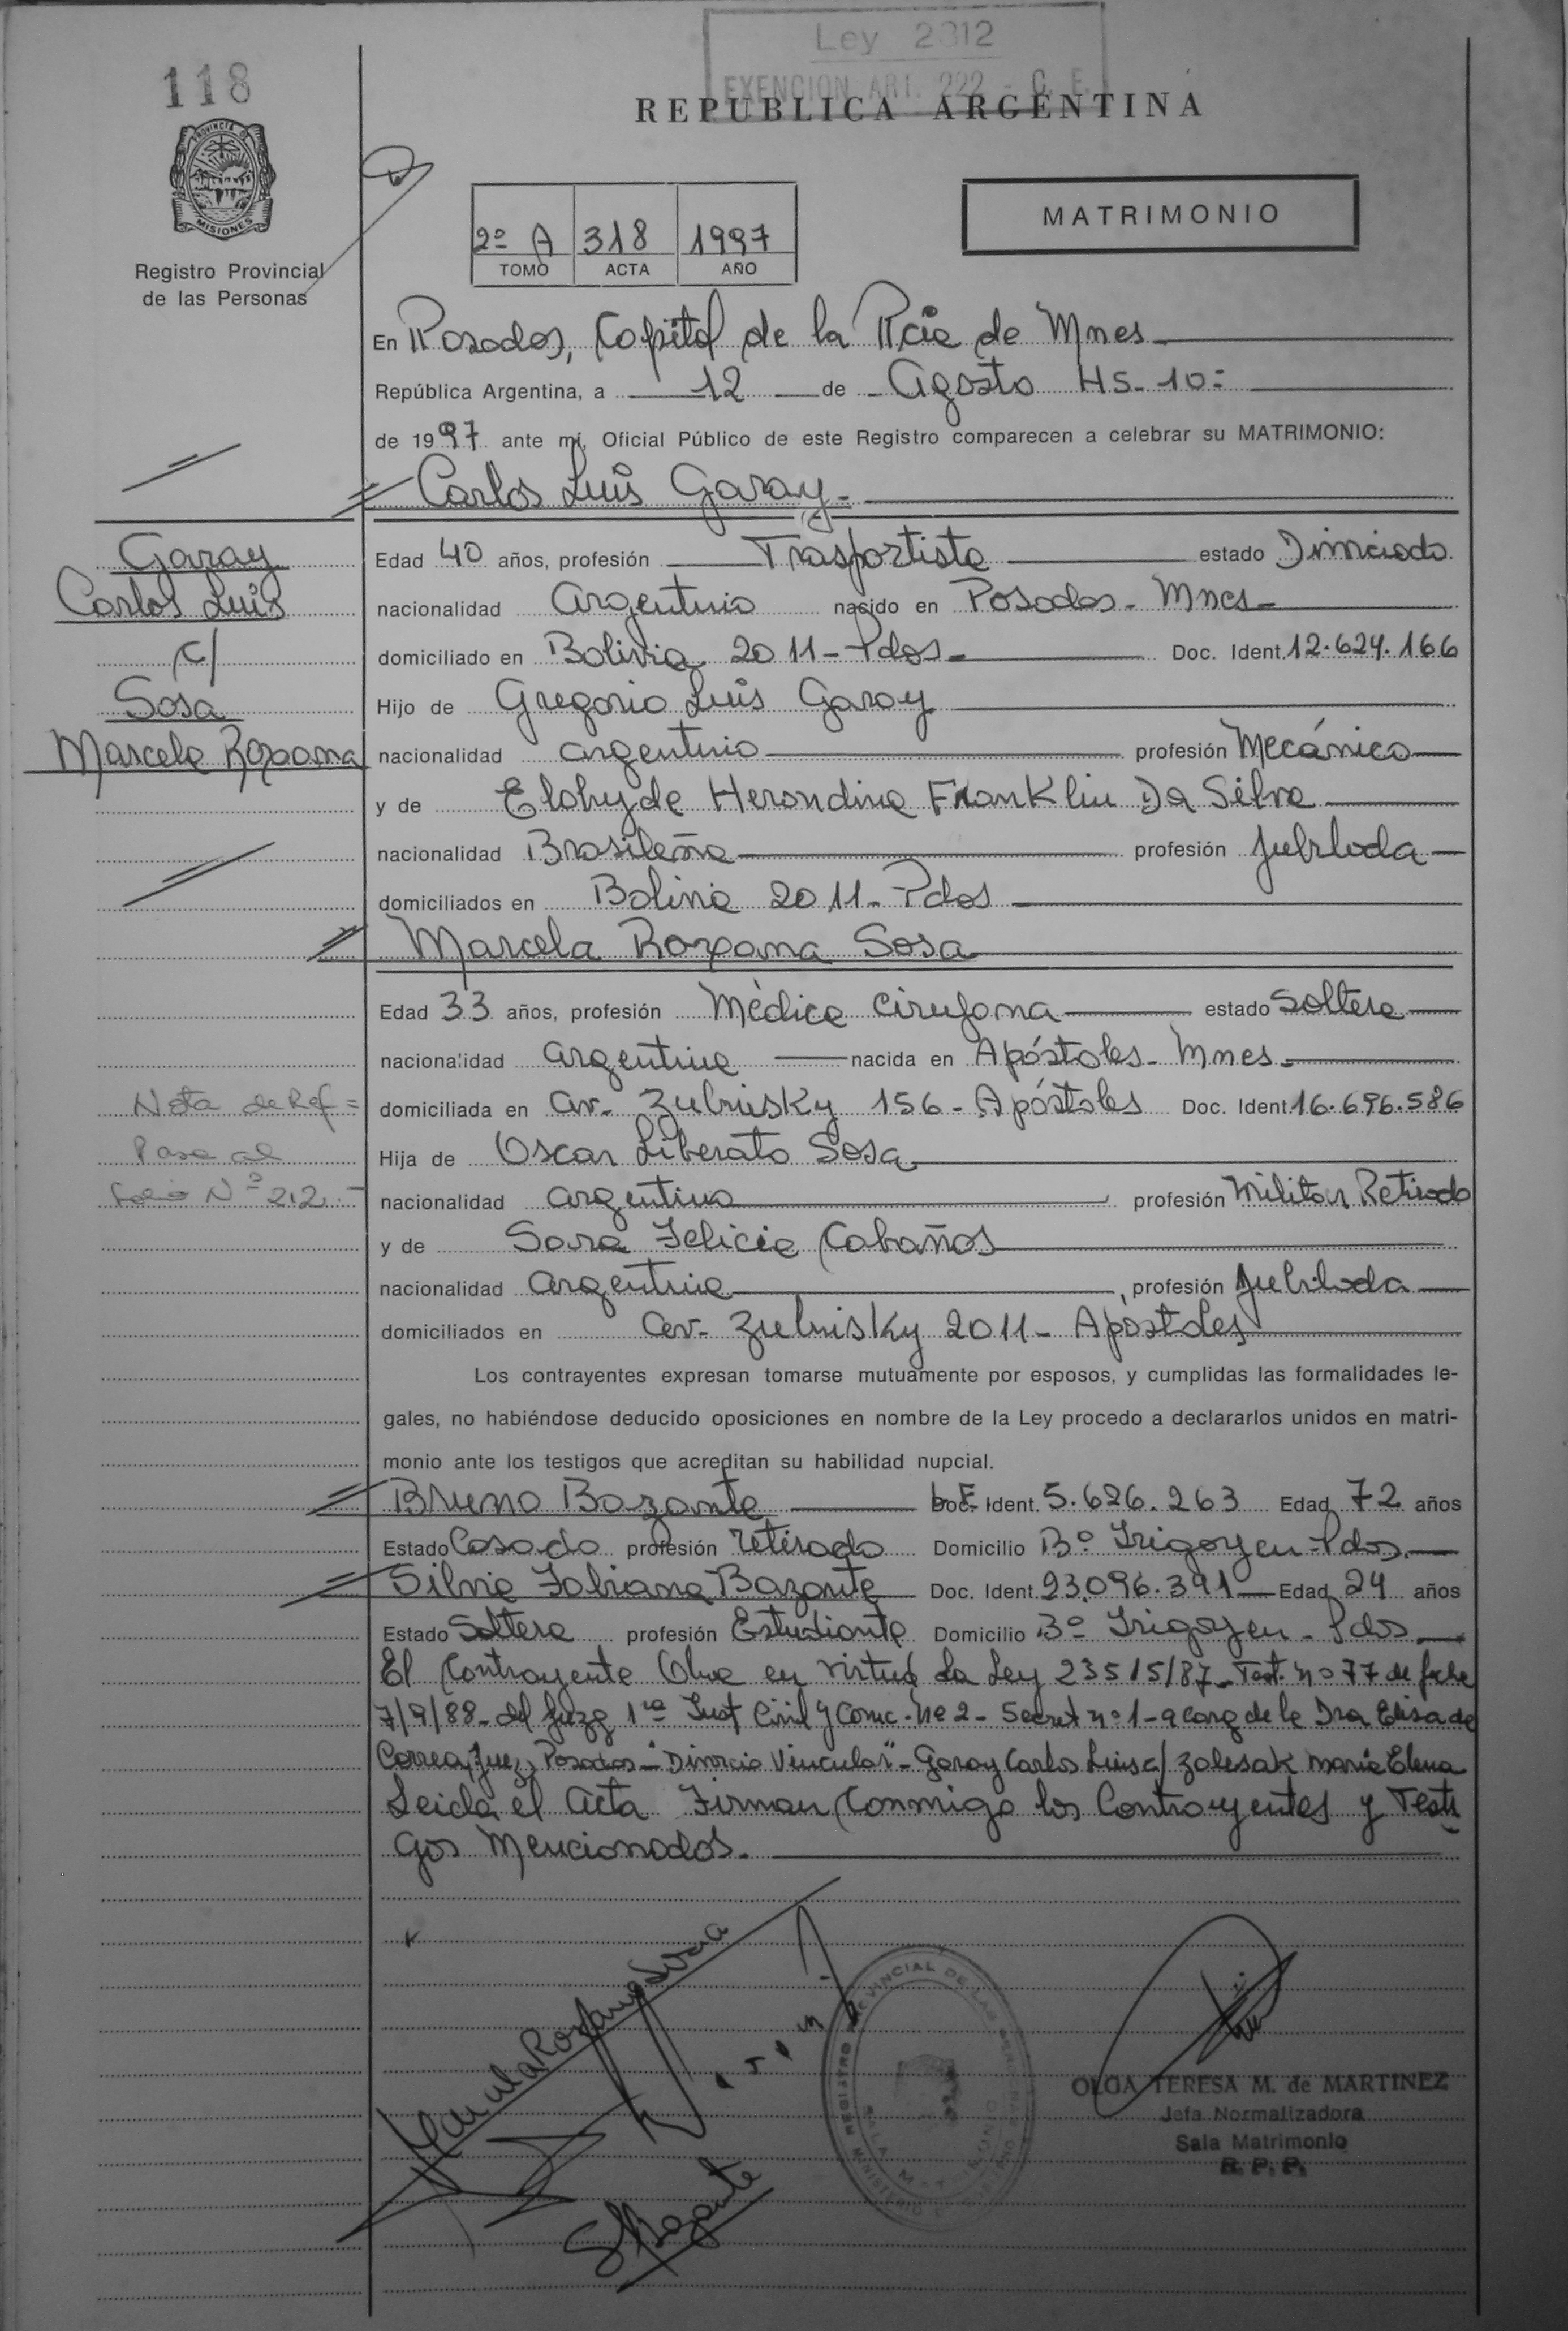 Ley 2312
EXENCION ART. 222 - C. F.
118
REPUBLICA ARGENTINA
PROVINCIA DE
MISIONES
Registro Provincial
de las Personas
2º A 318 1997
TOMO ACTA AÑO
MATRIMONIO
En Posadas, Capital de la Pcia de Mnes
República Argentina, a 12 de Agosto Hs. 10:
de 1997 ante mí, Oficial Público de este Registro comparecen a celebrar su MATRIMONIO:
Carlos Luis Garay
Garay
Carlos Luis
c/
Sosa
Marcela Roxana
Edad 40 años, profesión Trasportista estado Divorciado
nacionalidad Argentino nacido en Posadas - Mnes
domiciliado en Bolivia 2011 - Pdas Doc. Ident. 12.624.166
Hijo de Gregorio Luis Garay
nacionalidad argentino profesión Mecánico
y de Herondina Franklin Da Silva
nacionalidad Brasileña profesión Jubilada
domiciliados en Bolivia 2011 - Pdas
Marcela Roxana Sosa
Edad 33 años, profesión Médica Cirujana estado Soltera
nacionalidad argentina nacida en Apóstoles - Mnes
domiciliada en Av. Zubrisky 156 - Apóstoles Doc. Ident. 16.696.586
Nota de Ref =
Pasa al
folio Nº 212
Hija de Oscar Liberato Sosa
nacionalidad argentino profesión Militar Retirado
y de Sara Felicia Cabañas
nacionalidad argentina profesión Jubilada
domiciliados en Av. Zubrisky 2011 - Apóstoles
Los contrayentes expresan tomarse mutuamente por esposos, y cumplidas las formalidades le-
gales, no habiéndose deducido oposiciones en nombre de la Ley procedo a declararlos unidos en matri-
monio ante los testigos que acreditan su habilidad nupcial.
Bruno Bazante Ident. 5.626.263 Edad 72 años
Estado Casado profesión retirado Domicilio Bº Irigoyen - Pdas
Silvia Fabiana Bazante Doc. Ident. 23.096.391 Edad 24 años
Estado Soltera profesión Estudiante Domicilio Bº Irigoyen - Pdas
El Contrayente en virtud La Ley 23515/87 - Test. nº 77 de fecha
7/9/88 - del Juzg 1ra Inst Civil y Comc. Nº 2 - Secret nº 1 - a carg de la Dra Elisa de
Correa, Juez, Posadas - "Divorcio Vincular" - Garay Carlos Luis c/ Zalesak Maria Elena
Leida el Acta Firman Conmigo los Contrayentes y Testi
gos Mencionados.
Marcela Roxana Sosa
SFBazante
REGISTRO PROVINCIAL DE LAS PERSONAS
OLGA TERESA M. de MARTINEZ
Jefa Normalizadora
Sala Matrimonio
R. P. P.